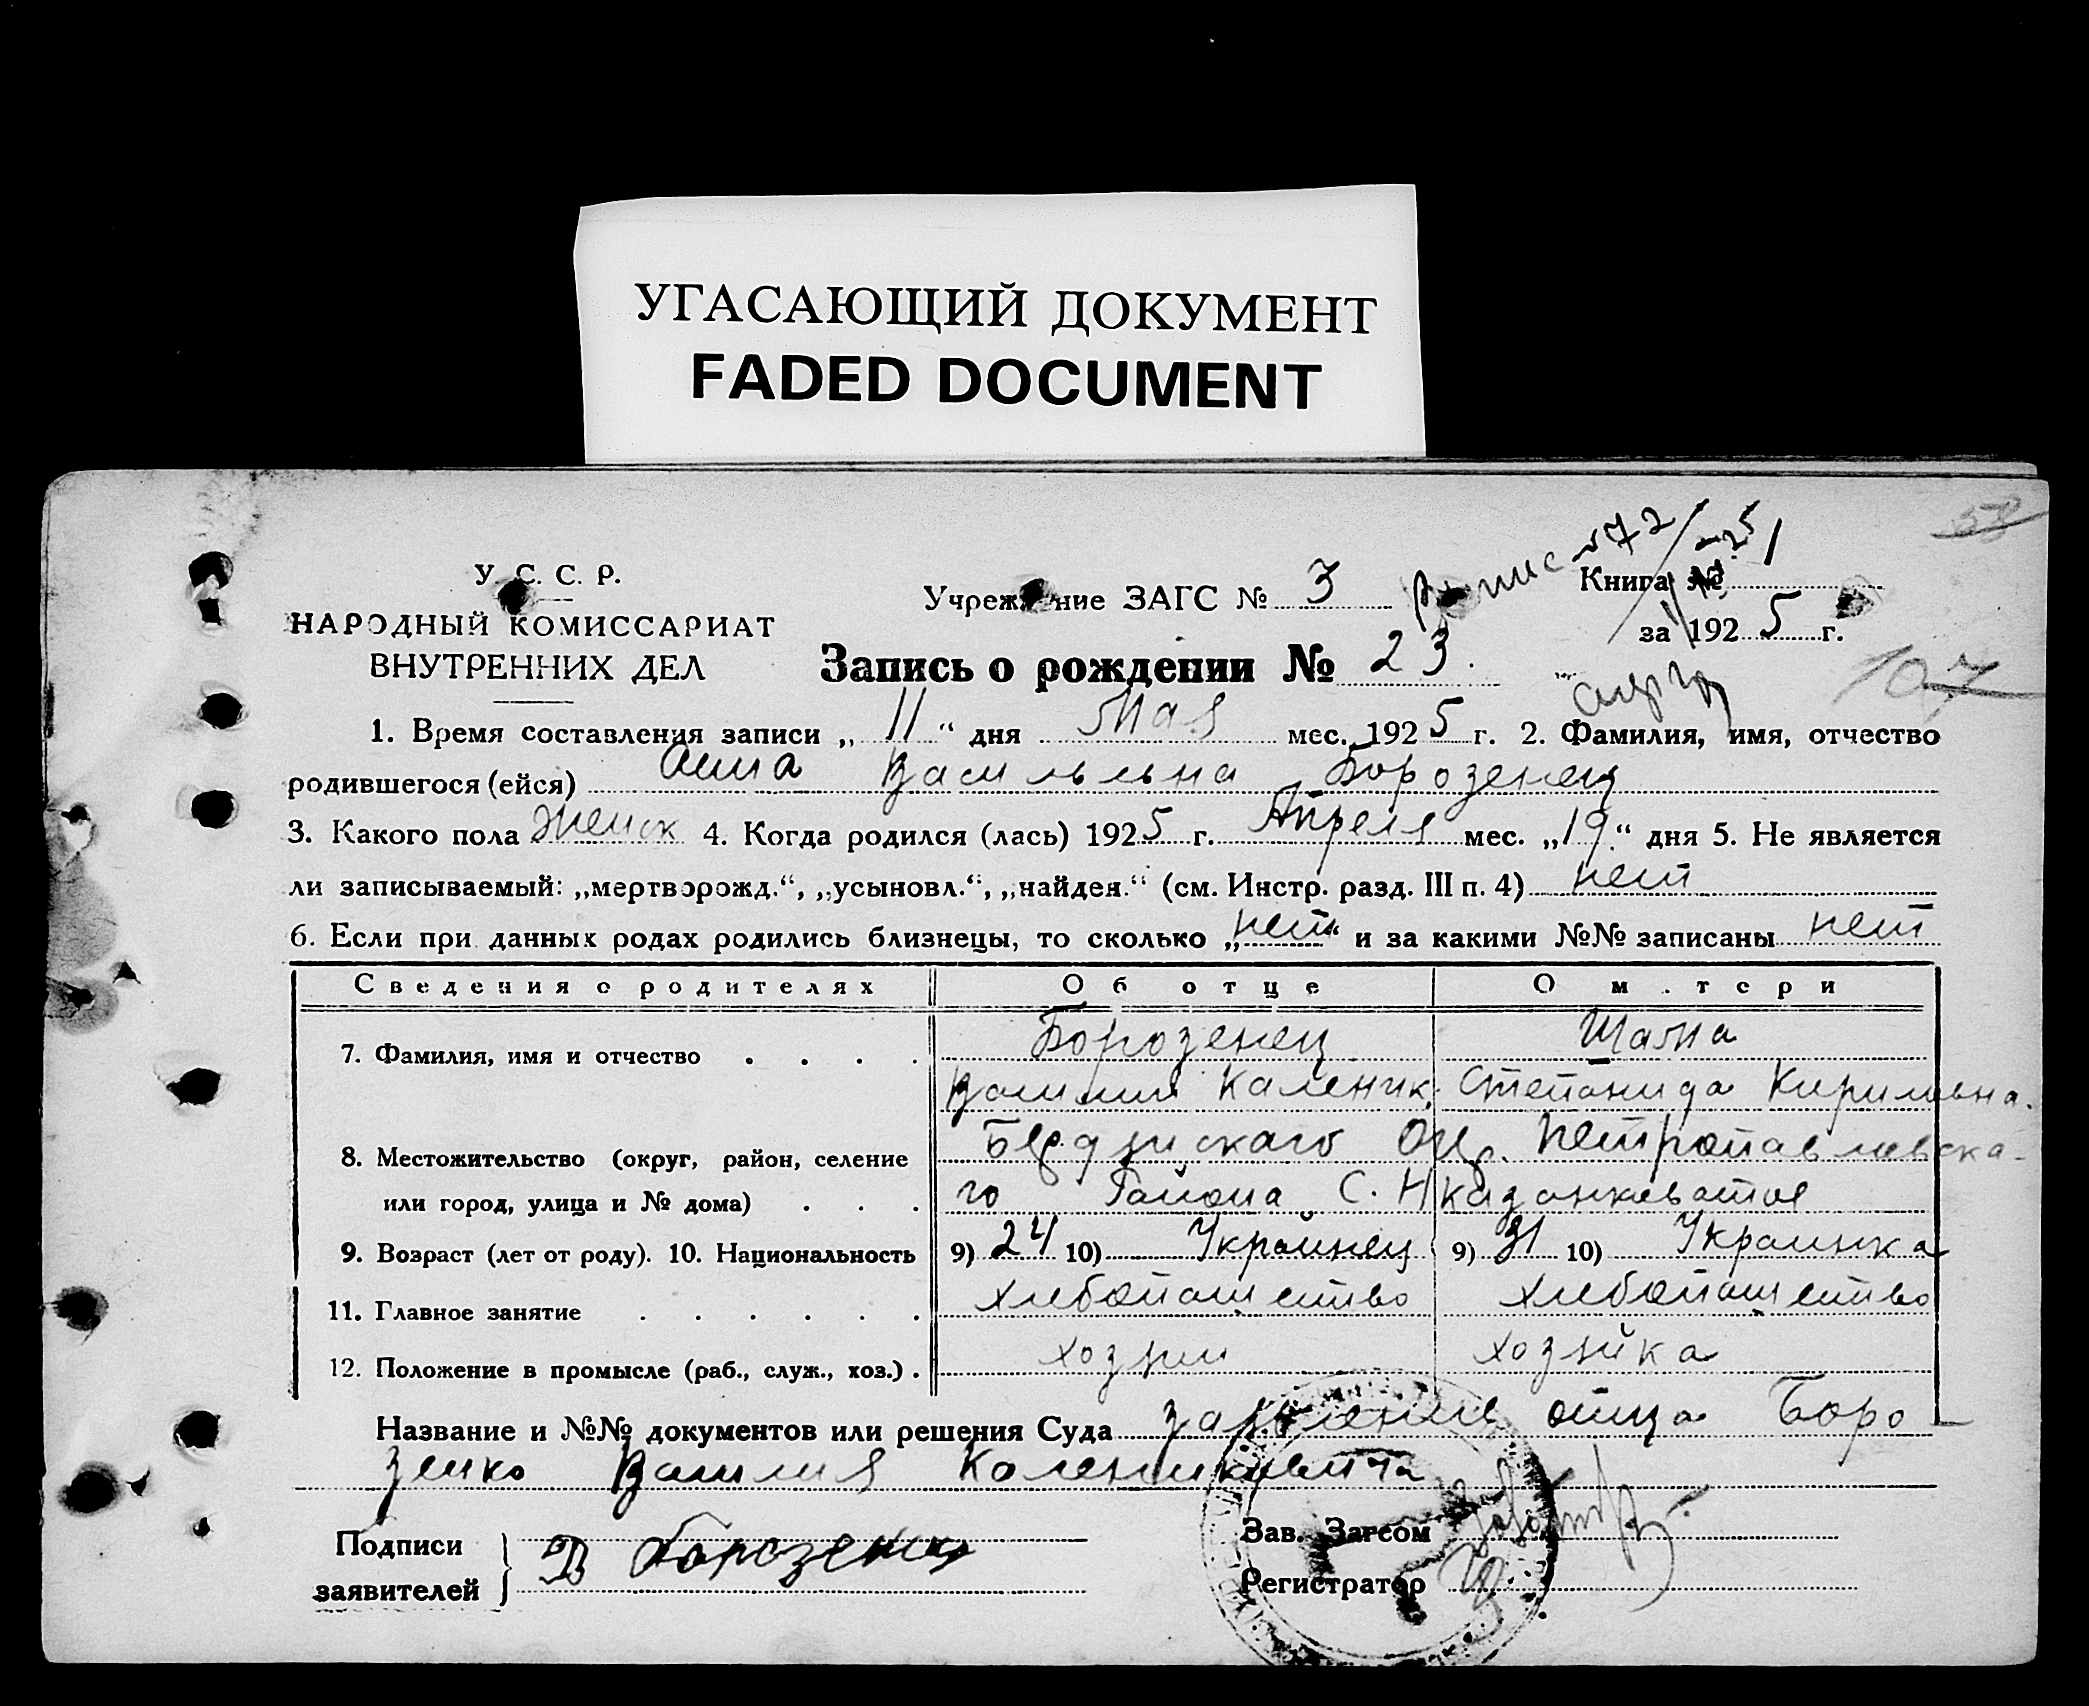 УГАСАЮЩИЙ ДОКУМЕНТ
FADED DOCUMENT
58
У. С. С. Р.
НАРОДНЫЙ КОМИССАРИАТ
ВНУТРЕННИХ ДЕЛ
Учреждение ЗАГС № 3
Книга № 1
за 1925 г.
Запись о рождении № 23.
107
1. Время составления записи „11“ дня Мая мес. 1925 г. 2. Фамилия, имя, отчество
родившегося (ейся) Анна Васильвна Борозенец
3. Какого пола Женск 4. Когда родился (лась) 1925 г. Апреля мес. „19“ дня 5. Не является
ли записываемый: „мертворожд.“, „усыновл.“, „найден.“ (см. Инстр. разд. III п. 4) нет
6. Если при данных родах родились близнецы, то сколько „нет“ и за какими №№ записаны нет
Сведения о родителях Об отце О матери
7. Фамилия, имя и отчество Борозенец Шама
Василий Каленик. Степанида Кириловна.
8. Местожительство (округ, район, селение Бердянскаго Окр. Петропавловска-
или город, улица и № дома) го Района С. Н Казанковатое
9. Возраст (лет от роду). 10. Национальность 9) 24 10) Украинец 9) 31 10) Украинка
11. Главное занятие хлебопашество хлебопашество
12. Положение в промысле (раб., служ., хоз.) хозяин хозяйка
Название и №№ документов или решения Суда заявление отца Боро-
зенко Василия Каленикевича
Подписи
заявителей
В Борозенец
Зав. Загсом
Регистратор